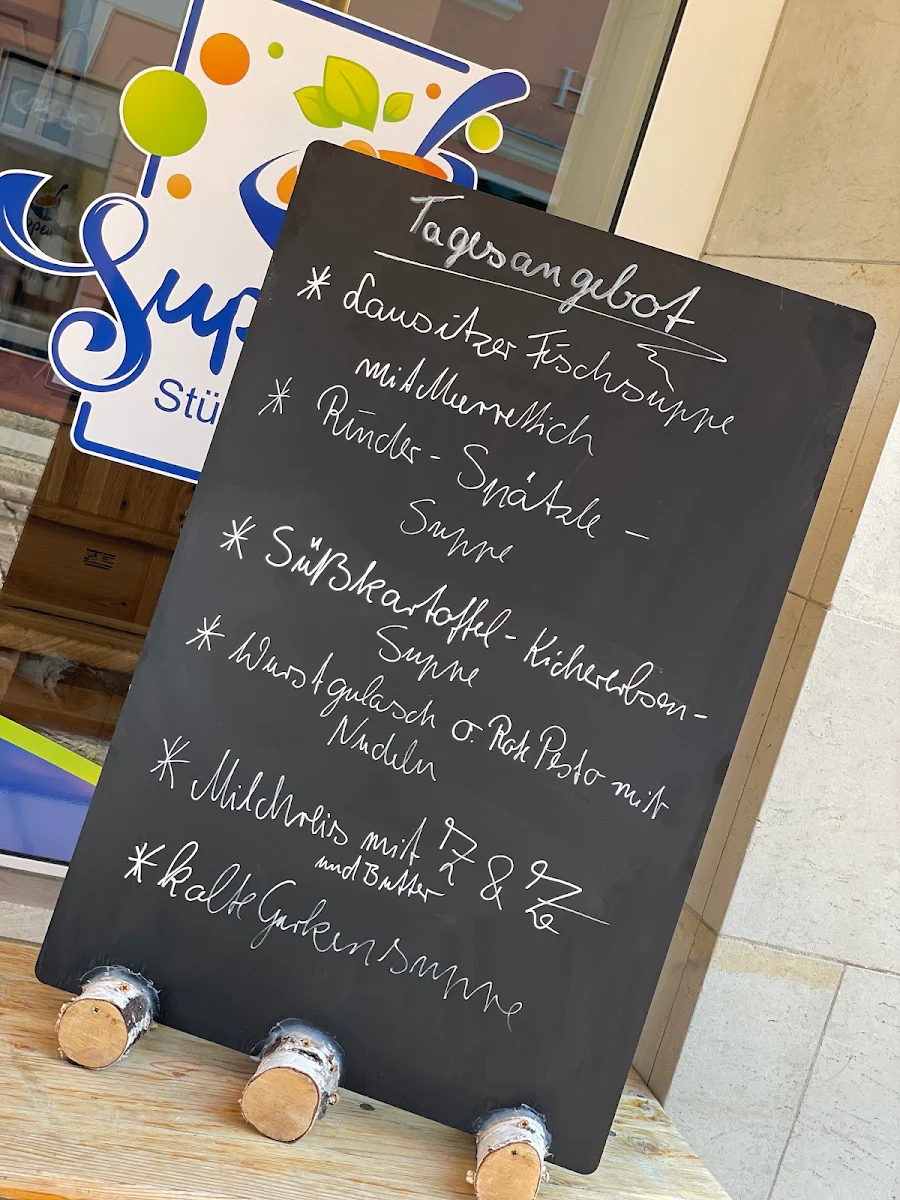 Sup
Stü
Tagesangebot
* Lausitzer Fischsuppe
mit Meerrettich
* Rinder - Spätzle -
Suppe
* Süßkartoffel - Kichererbsen -
Suppe
* Wurstgulasch o. Rote Pesto mit
Nudeln
* Milchreis mit Z & Z
und Butter
* kalte Gurkensuppe